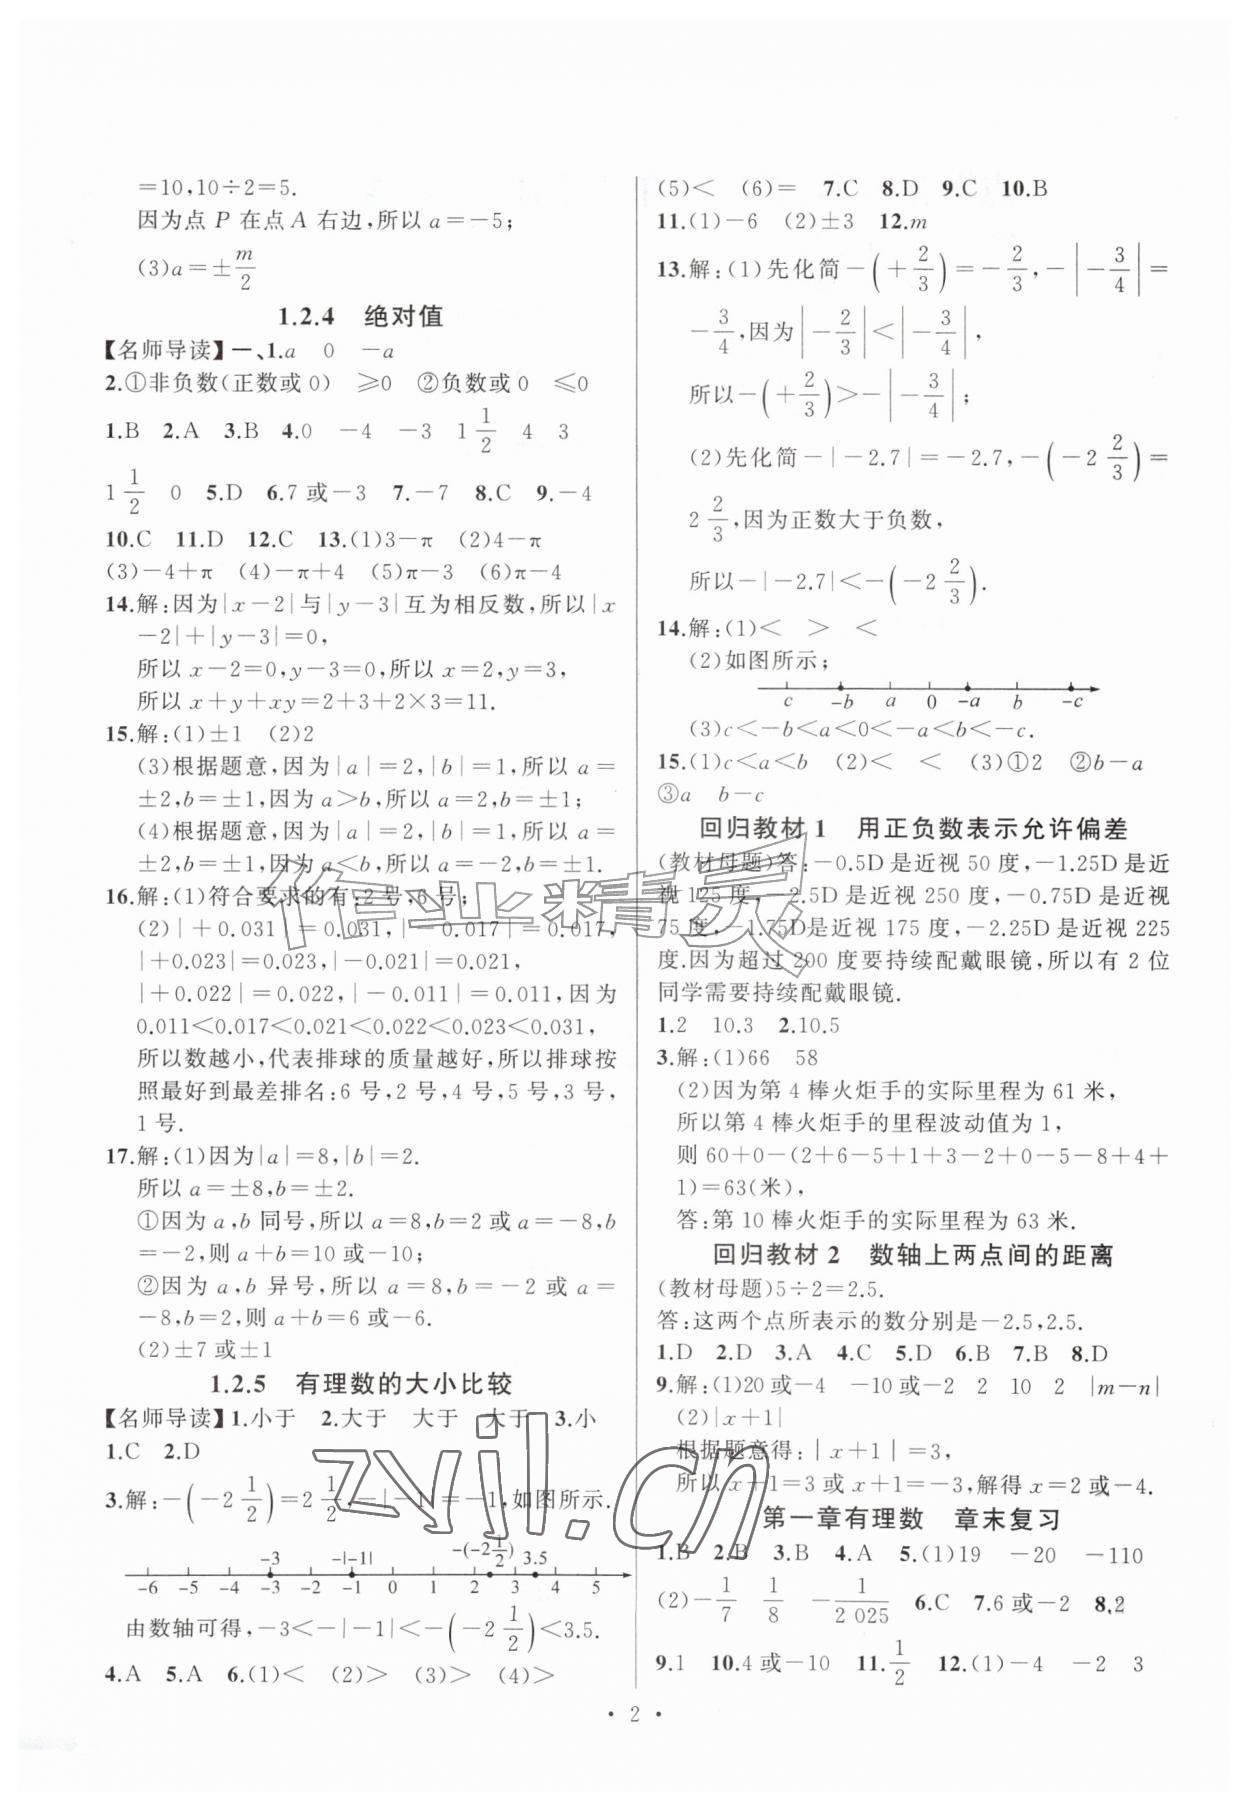 =10,10÷2=5.
因为点 P 在点 A 右边,所以 a=-5;
(3)a=±m/2
1.2.4 绝对值
【名师导读】一、1.a 0 -a
2.①非负数(正数或0) ≥0 ②负数或0 ≤0
1.B 2.A 3.B 4.0 -4 -3 1 1/2 4 3
1 1/2 0 5.D 6.7 或-3 7.-7 8.C 9.-4
10.C 11.D 12.C 13.(1)3-π (2)4-π
(3)-4+π (4)-π+4 (5)π-3 (6)π-4
14.解:因为|x-2|与|y-3|互为相反数,所以|x
-2|+|y-3|=0,
所以 x-2=0,y-3=0,所以 x=2,y=3,
所以 x+y+xy=2+3+2×3=11.
15.解:(1)±1 (2)2
(3)根据题意,因为|a|=2,|b|=1,所以 a=
±2,b=±1,因为 a>b,所以 a=2,b=±1;
(4)根据题意,因为|a|=2,|b|=1,所以 a=
±2,b=±1,因为 a<b,所以 a=-2,b=±1.
16.解:(1)符合要求的有:2 号,6 号;
(2)|+0.031|=0.031,|-0.017|=0.017,
|+0.023|=0.023,|-0.021|=0.021,
|+0.022|=0.022,|-0.011|=0.011,因为
0.011<0.017<0.021<0.022<0.023<0.031,
所以数越小,代表排球的质量越好,所以排球按
照最好到最差排名:6 号,2 号,4 号,5 号,3 号,
1 号.
17.解:(1)因为|a|=8,|b|=2.
所以 a=±8,b=±2.
①因为 a,b 同号,所以 a=8,b=2 或 a=-8,b
=-2,则 a+b=10 或-10;
②因为 a,b 异号,所以 a=8,b=-2 或 a=
-8,b=2,则 a+b=6 或-6.
(2)±7 或±1
1.2.5 有理数的大小比较
【名师导读】1.小于 2.大于 大于 大于 3.小
1.C 2.D
3.解:-(-2 1/2)=2 1/2,-|-1|=-1,如图所示.
-3 -|-1| -(-2 1/2) 3.5
-6 -5 -4 -3 -2 -1 0 1 2 3 4 5
由数轴可得,-3<-|-1|<-(-2 1/2)<3.5.
4.A 5.A 6.(1)< (2)> (3)> (4)>
(5)< (6)= 7.C 8.D 9.C 10.B
11.(1)-6 (2)±3 12.m
13.解:(1)先化简-(+2/3)=-2/3,-|-3/4|=
-3/4,因为|-2/3|<|-3/4|,
所以-(+2/3)>-|-3/4|;
(2)先化简-|-2.7|=-2.7,-(-2 2/3)=
2 2/3,因为正数大于负数,
所以-|-2.7|<-(-2 2/3).
14.解:(1)< > <
(2)如图所示;
c -b a 0 -a b -c
(3)c<-b<a<0<-a<b<-c.
15.(1)c<a<b (2)< < (3)①2 ②b-a
③a b-c
回归教材 1 用正负数表示允许偏差
(教材母题)答:-0.5D 是近视 50 度,-1.25D 是近
视 125 度,-2.5D 是近视 250 度,-0.75D 是近视
75 度,-1.75D 是近视 175 度,-2.25D 是近视 225
度.因为超过 200 度要持续配戴眼镜,所以有 2 位
同学需要持续配戴眼镜.
1.2 10.3 2.10.5
3.解:(1)66 58
(2)因为第 4 棒火炬手的实际里程为 61 米,
所以第 4 棒火炬手的里程波动值为 1,
则 60+0-(2+6-5+1+3-2+0-5-8+4+
1)=63(米),
答:第 10 棒火炬手的实际里程为 63 米.
回归教材 2 数轴上两点间的距离
(教材母题)5÷2=2.5.
答:这两个点所表示的数分别是-2.5,2.5.
1.D 2.D 3.A 4.C 5.D 6.B 7.B 8.D
9.解:(1)20 或-4 -10 或-2 2 10 2 |m-n|
(2)|x+1|
根据题意得:|x+1|=3,
所以 x+1=3 或 x+1=-3,解得 x=2 或-4.
第一章有理数 章末复习
1.B 2.B 3.B 4.A 5.(1)19 -20 -110
(2)-1/7 1/8 -1/2 025 6.C 7.6 或-2 8.2
9.1 10.4 或-10 11.1/2 12.(1)-4 -2 3
· 2 ·
作业精灵
zyjl.cn